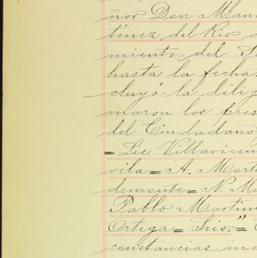 ñor Don Man
tinez del Rio
miento del
hasta la fecha
cluyó la dilig
maron los pres
del Ciudadano
=Lic Villavicen
vila=A. Mart
demonte=N. M
Pablo Martin
Ortega=Srio."
constancias in